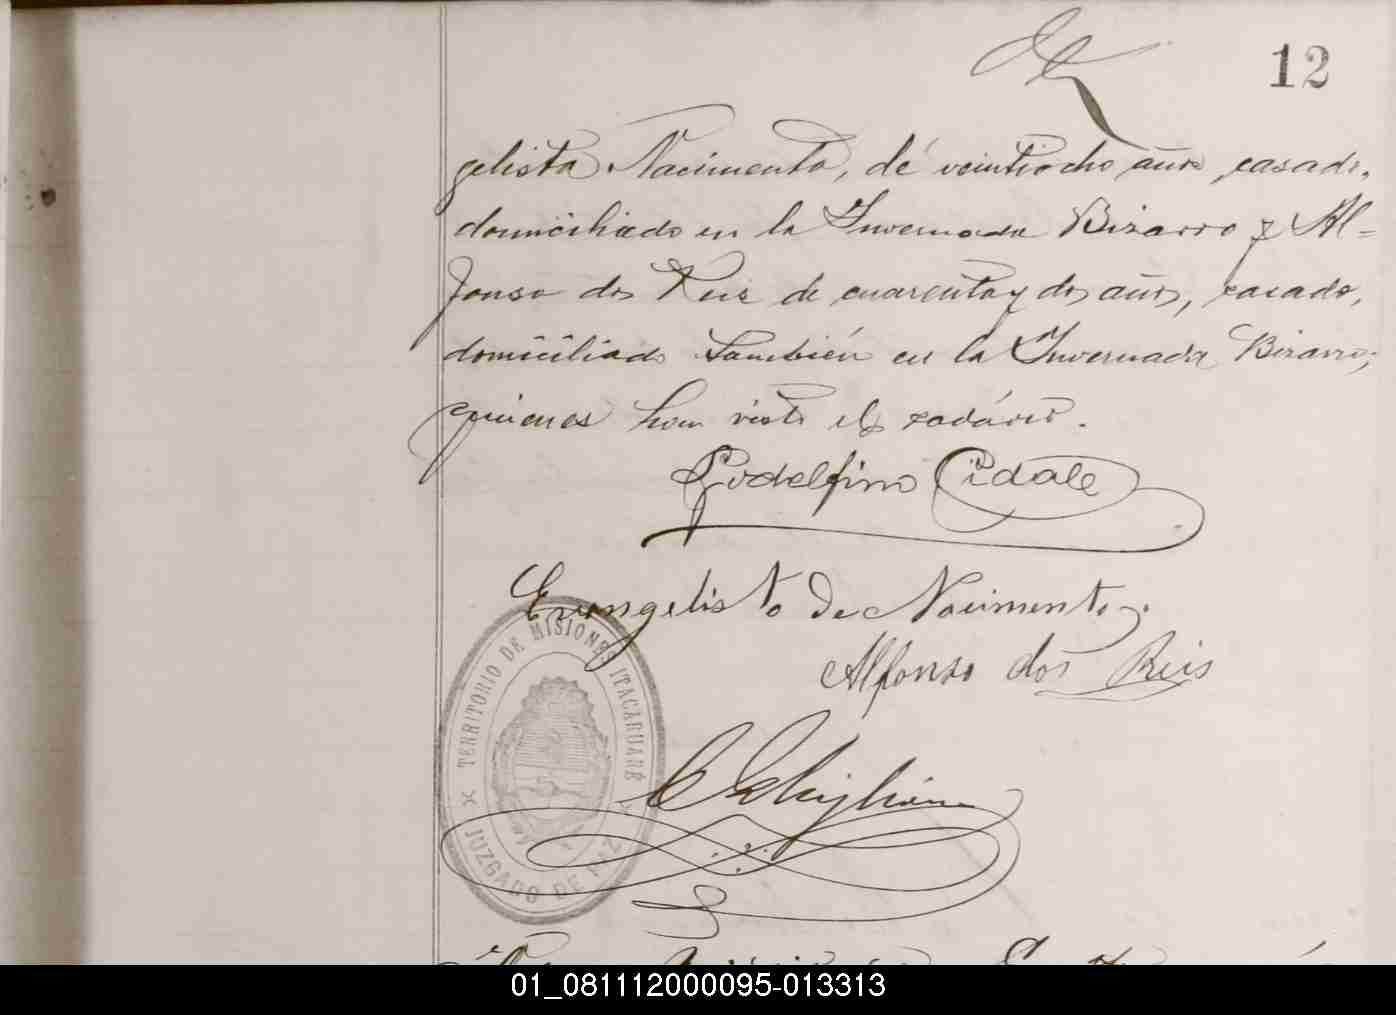 12
gelista Nacimento, de veintiocho años, casado,
domiciliado en la Invernada Bizarro y Al=
fonso dos Reis de cuarenta y dos años, casado,
domiciliado también en la Invernada Bizarro;
quienes han visto el cadáver.
Godelfino Cidale
Evangelisto de Nacimento
Alfonso dos Reis
TERRITORIO DE MISIONES ITACARUARÉ
JUZGADO DE PAZ
01_081112000095-013313